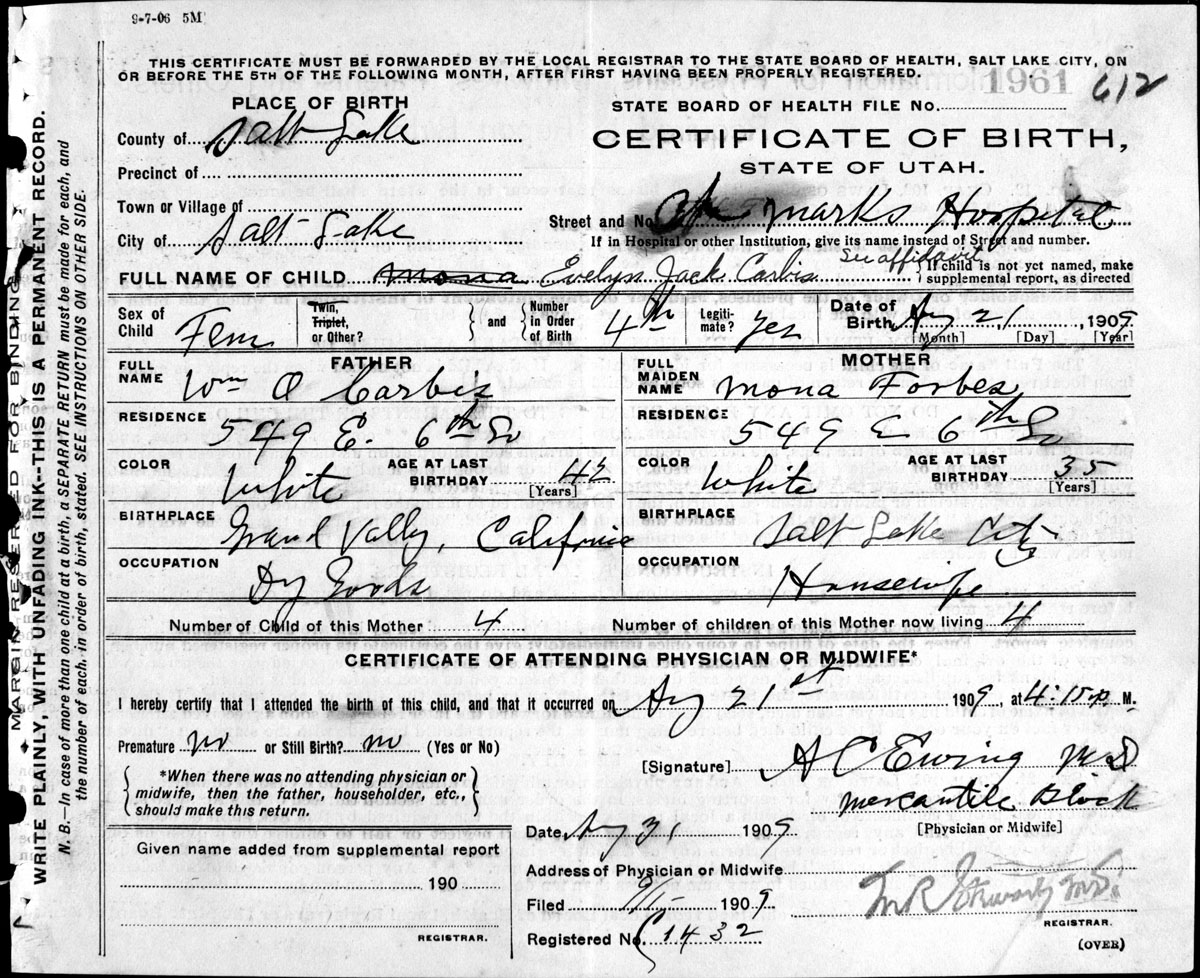 9-7-06 5M
THIS CERTIFICATE MUST BE FORWARDED BY THE LOCAL REGISTRAR TO THE STATE BOARD OF HEALTH, SALT LAKE CITY, ON
OR BEFORE THE 5TH OF THE FOLLOWING MONTH, AFTER FIRST HAVING BEEN PROPERLY REGISTERED.
1961 612
PLACE OF BIRTH
STATE BOARD OF HEALTH FILE No.
County of Salt Lake
CERTIFICATE OF BIRTH,
STATE OF UTAH.
Precinct of
Town or Village of
Street and No. Marks Hospital
City of Salt Lake
If in Hospital or other Institution, give its name instead of Street and number.
FULL NAME OF CHILD Mona Evelyn Jack Carbis See affidavit
If child is not yet named, make
supplemental report, as directed
Sex of Child Fem
Twin, Triplet, or Other?
and
Number in Order of Birth 4th
Legiti-mate? yes
Date of Birth Aug 21, 1909
[Month] [Day] [Year]
FATHER
FULL NAME Wm O Carbis
MOTHER
FULL MAIDEN NAME Mona Forbes
RESIDENCE 549 E. 6th So
RESIDENCE 549 E 6th So
COLOR White
AGE AT LAST BIRTHDAY 42
[Years]
COLOR White
AGE AT LAST BIRTHDAY 35
[Years]
BIRTHPLACE Grand Valley, California
BIRTHPLACE Salt Lake City
OCCUPATION Dry Goods
OCCUPATION Housewife
Number of Child of this Mother 4
Number of children of this Mother now living 4
CERTIFICATE OF ATTENDING PHYSICIAN OR MIDWIFE*
I hereby certify that I attended the birth of this child, and that it occurred on Aug 21st 1909, at 4:15 p. M.
Premature no or Still Birth? no (Yes or No)
*When there was no attending physician or
midwife, then the father, householder, etc.,
should make this return.
[Signature] A C Ewing MD
Mercantile Block
[Physician or Midwife]
Date Aug 31 1909
Given name added from supplemental report
190
REGISTRAR.
Address of Physician or Midwife
Filed 9/1- 1909
M R Stewart M.D.
REGISTRAR.
Registered No. C1432
(OVER)
MARGIN RESERVED FOR BINDING
WRITE PLAINLY, WITH UNFADING INK--THIS IS A PERMANENT RECORD.
N. B.—In case of more than one child at a birth, a SEPARATE RETURN must be made for each, and
the number of each, in order of birth, stated. SEE INSTRUCTIONS ON OTHER SIDE.